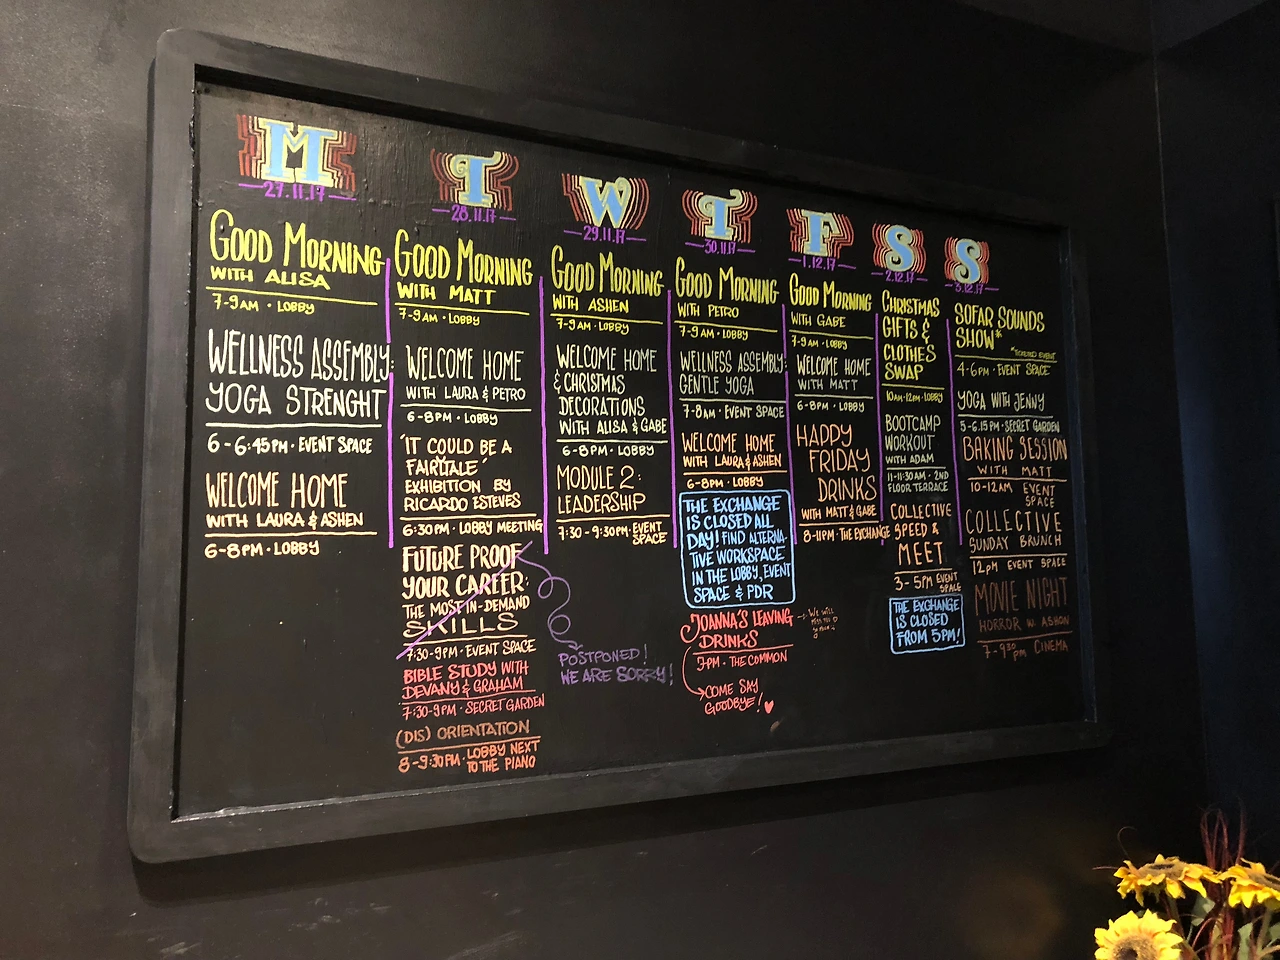 M
27.11.17
GOOD MORNING
WITH ALISA
7-9AM · LOBBY
WELLNESS ASSEMBLY:
YOGA STRENGHT
6-6:45PM · EVENT SPACE
WELCOME HOME
WITH LAURA & ASHEN
6-8PM · LOBBY
T
28.11.17
GOOD MORNING
WITH MATT
7-9AM · LOBBY
WELCOME HOME
WITH LAURA & PETRO
6-8PM · LOBBY
"IT COULD BE A
FAIRYTALE"
EXHIBITION BY
RICARDO ESTEVES
6:30PM · LOBBY MEETING
FUTURE PROOF
YOUR CAREER:
THE MOST IN-DEMAND
SKILLS
7:30-9PM · EVENT SPACE
BIBLE STUDY WITH
DEVANY & GRAHAM
7:30-9PM · SECRET GARDEN
(DIS) ORIENTATION
8-9:30PM · LOBBY NEXT
TO THE PIANO
W
29.11.17
GOOD MORNING
WITH ASHEN
7-9AM · LOBBY
WELCOME HOME
& CHRISTMAS
DECORATIONS
WITH ALISA & GABE
6-8PM · LOBBY
MODULE 2:
LEADERSHIP
7:30-9:30PM · EVENT
SPACE
POSTPONED!
WE ARE SORRY!
T
30.11.17
GOOD MORNING
WITH PETRO
7-9AM · LOBBY
WELLNESS ASSEMBLY:
GENTLE YOGA
7-8AM · EVENT SPACE
WELCOME HOME
WITH LAURA & ASHEN
6-8PM · LOBBY
THE EXCHANGE
IS CLOSED ALL
DAY! FIND ALTERNA-
TIVE WORKSPACE
IN THE LOBBY, EVENT
SPACE & PDR
JOANNA'S LEAVING
DRINKS
7PM · THE COMMON
COME SAY
GOODBYE!
We will
miss you
F
1.12.17
GOOD MORNING
WITH GABE
7-9AM · LOBBY
WELCOME HOME
WITH MATT
6-8PM · LOBBY
HAPPY
FRIDAY
DRINKS
WITH MATT & GABE
8-11PM · THE EXCHANGE
S
2.12.17
CHRISTMAS
GIFTS &
CLOTHES
SWAP
10AM-12PM · LOBBY
BOOTCAMP
WORKOUT
WITH ADAM
11-11:30AM · 2ND
FLOOR TERRACE
COLLECTIVE
SPEED &
MEET
3-5PM EVENT
SPACE
THE EXCHANGE
IS CLOSED
FROM 5PM!
S
3.12.17
SOFAR SOUNDS
SHOW*
*TICKETED EVENT
4-6PM · EVENT SPACE
YOGA WITH JENNY
5-6.15PM · SECRET GARDEN
BAKING SESSION
WITH MATT
10-12AM EVENT
SPACE
COLLECTIVE
SUNDAY BRUNCH
12PM EVENT SPACE
MOVIE NIGHT
HORROR W. ASHON
7-9:30PM CINEMA